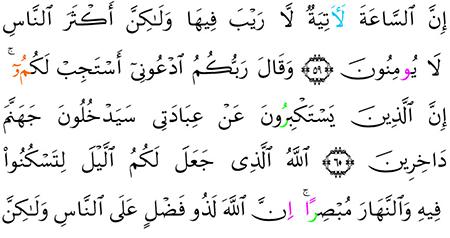 إِنَّ ٱلسَّاعَةَ لَأَتِيَةٌ لَّا رَيْبَ فِيهَا وَلَٰكِنَّ أَكْثَرَ ٱلنَّاسِ
لَا يُومِنُونَ ﴿٥٩﴾ وَقَالَ رَبُّكُمُ ٱدْعُونِيٓ أَسْتَجِبْ لَكُمُۥٓۚ
إِنَّ ٱلَّذِينَ يَسْتَكْبِرُونَ عَنْ عِبَادَتِي سَيَدْخُلُونَ جَهَنَّمَ
دَاخِرِينَ ﴿٦٠﴾ ٱللَّهُ ٱلَّذِى جَعَلَ لَكُمُ ٱلَّيْلَ لِتَسْكُنُواْ
فِيهِ وَٱلنَّهَارَ مُبْصِرًاۚ اِنَّ ٱللَّهَ لَذُو فَضْلٍ عَلَى ٱلنَّاسِ وَلَٰكِنَّ